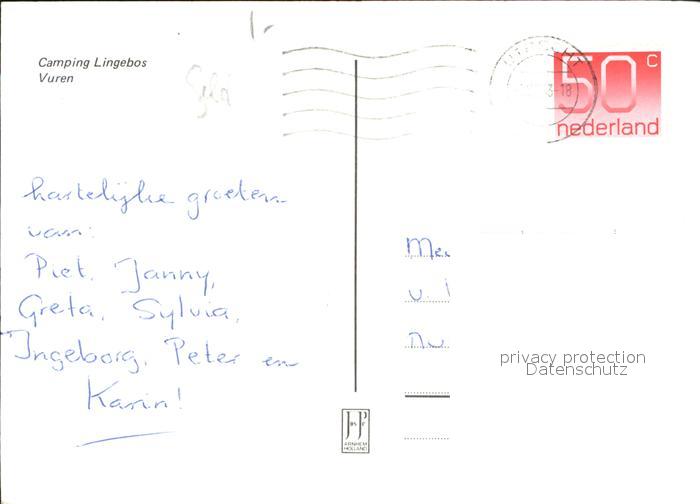 Camping Lingebos
Vuren
50 c
nederland
hartelijke groeten
van:
Piet, Janny,
Greta, Sylvia,
Ingeborg, Peter en
Karin!
privacy protection
Datenschutz
ARNHEM
HOLLAND